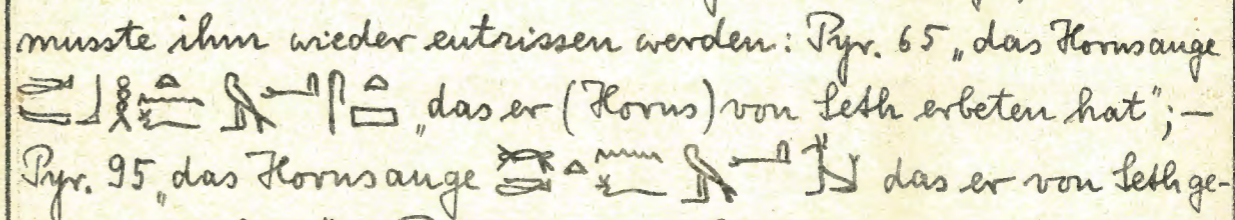 musste ihm wieder entrissen werden: Pyr. 65 „das Horusauge
„das er (Horus) von Seth erbeten hat"; –
Pyr. 95 „das Horusauge das er von Seth ge-